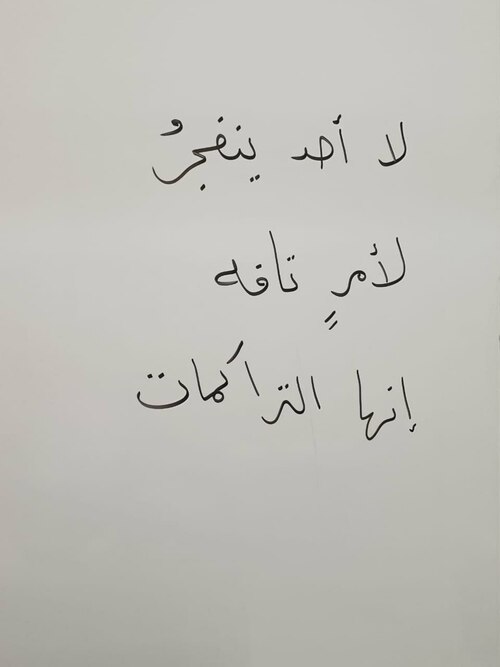 لا أحد ينفجرُ
لأمرٍ تافه
إنها التراكمات